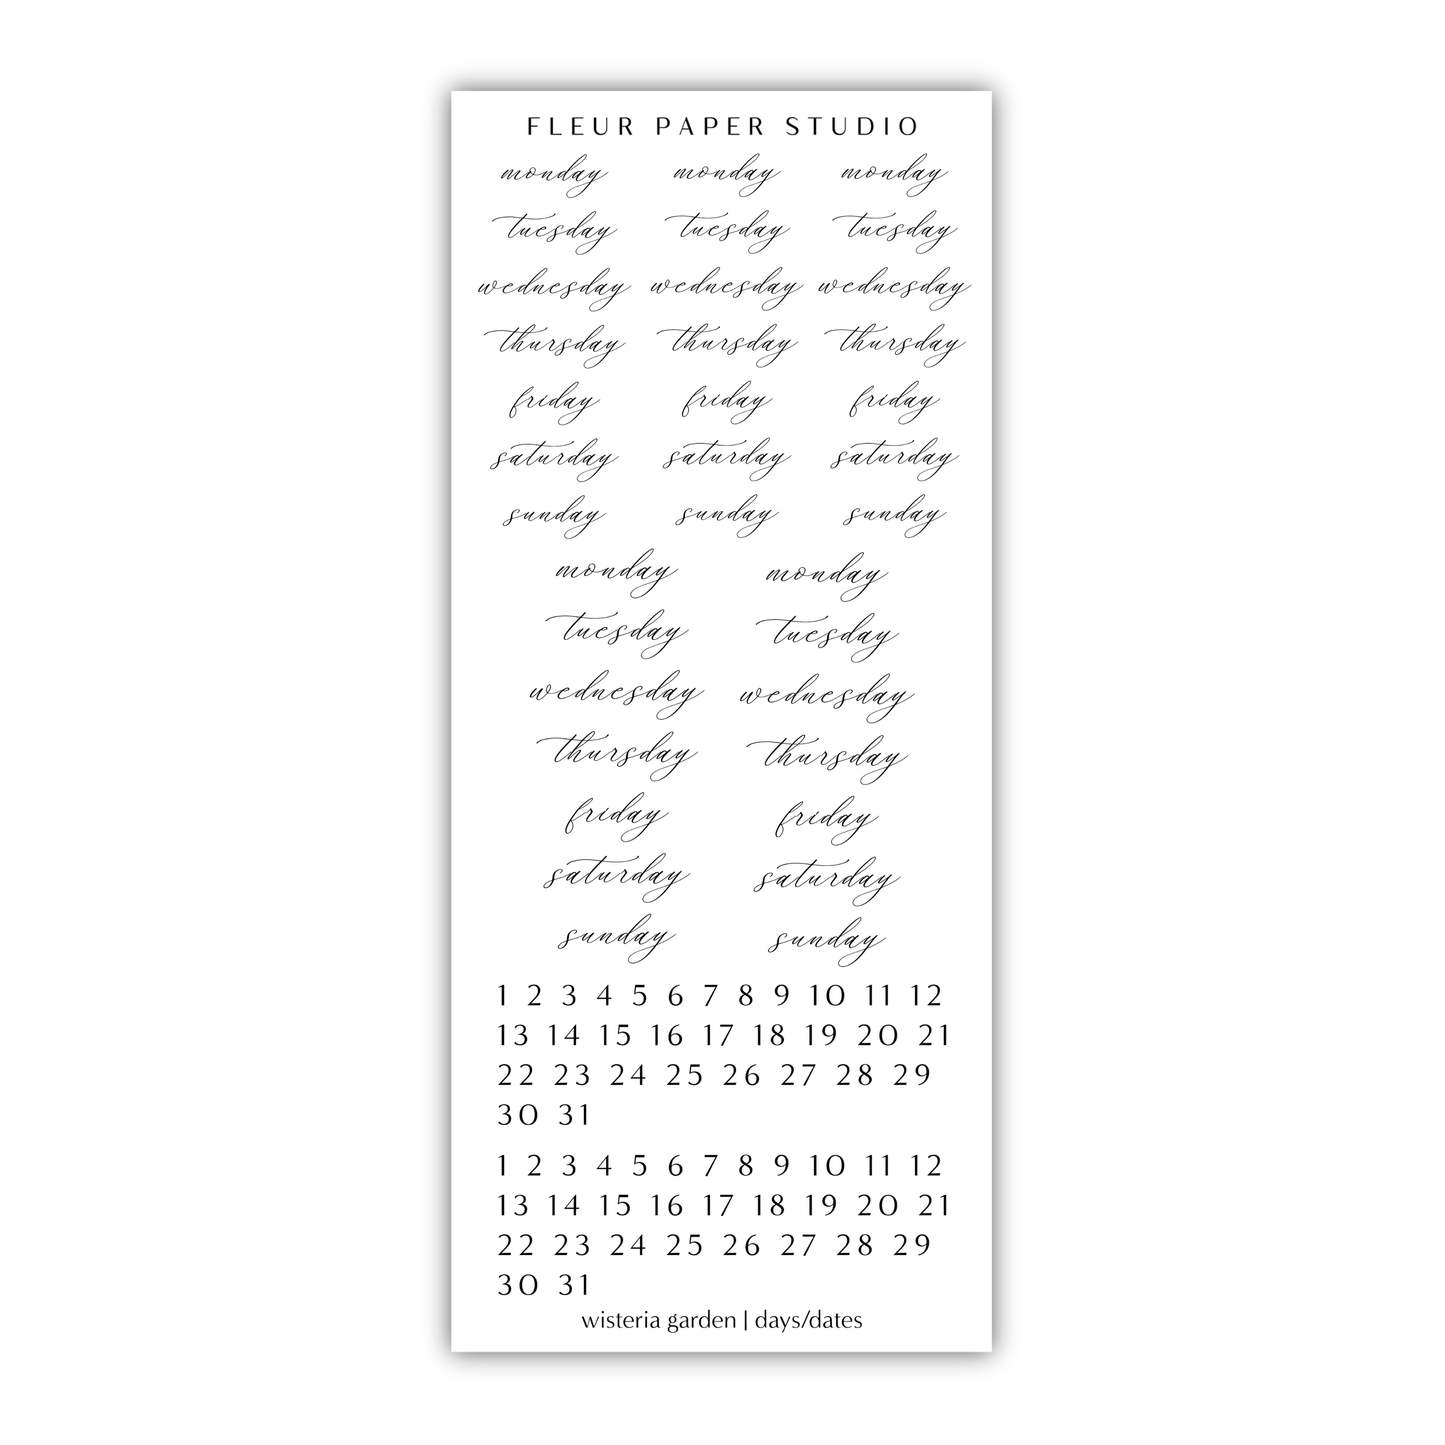 FLEUR PAPER STUDIO
monday monday monday
tuesday tuesday tuesday
wednesday wednesday wednesday
thursday thursday thursday
friday friday friday
saturday saturday saturday
sunday sunday sunday
monday monday
tuesday tuesday
wednesday wednesday
thursday thursday
friday friday
saturday saturday
sunday sunday
1 2 3 4 5 6 7 8 9 10 11 12
13 14 15 16 17 18 19 20 21
22 23 24 25 26 27 28 29
30 31
1 2 3 4 5 6 7 8 9 10 11 12
13 14 15 16 17 18 19 20 21
22 23 24 25 26 27 28 29
30 31
wisteria garden | days/dates